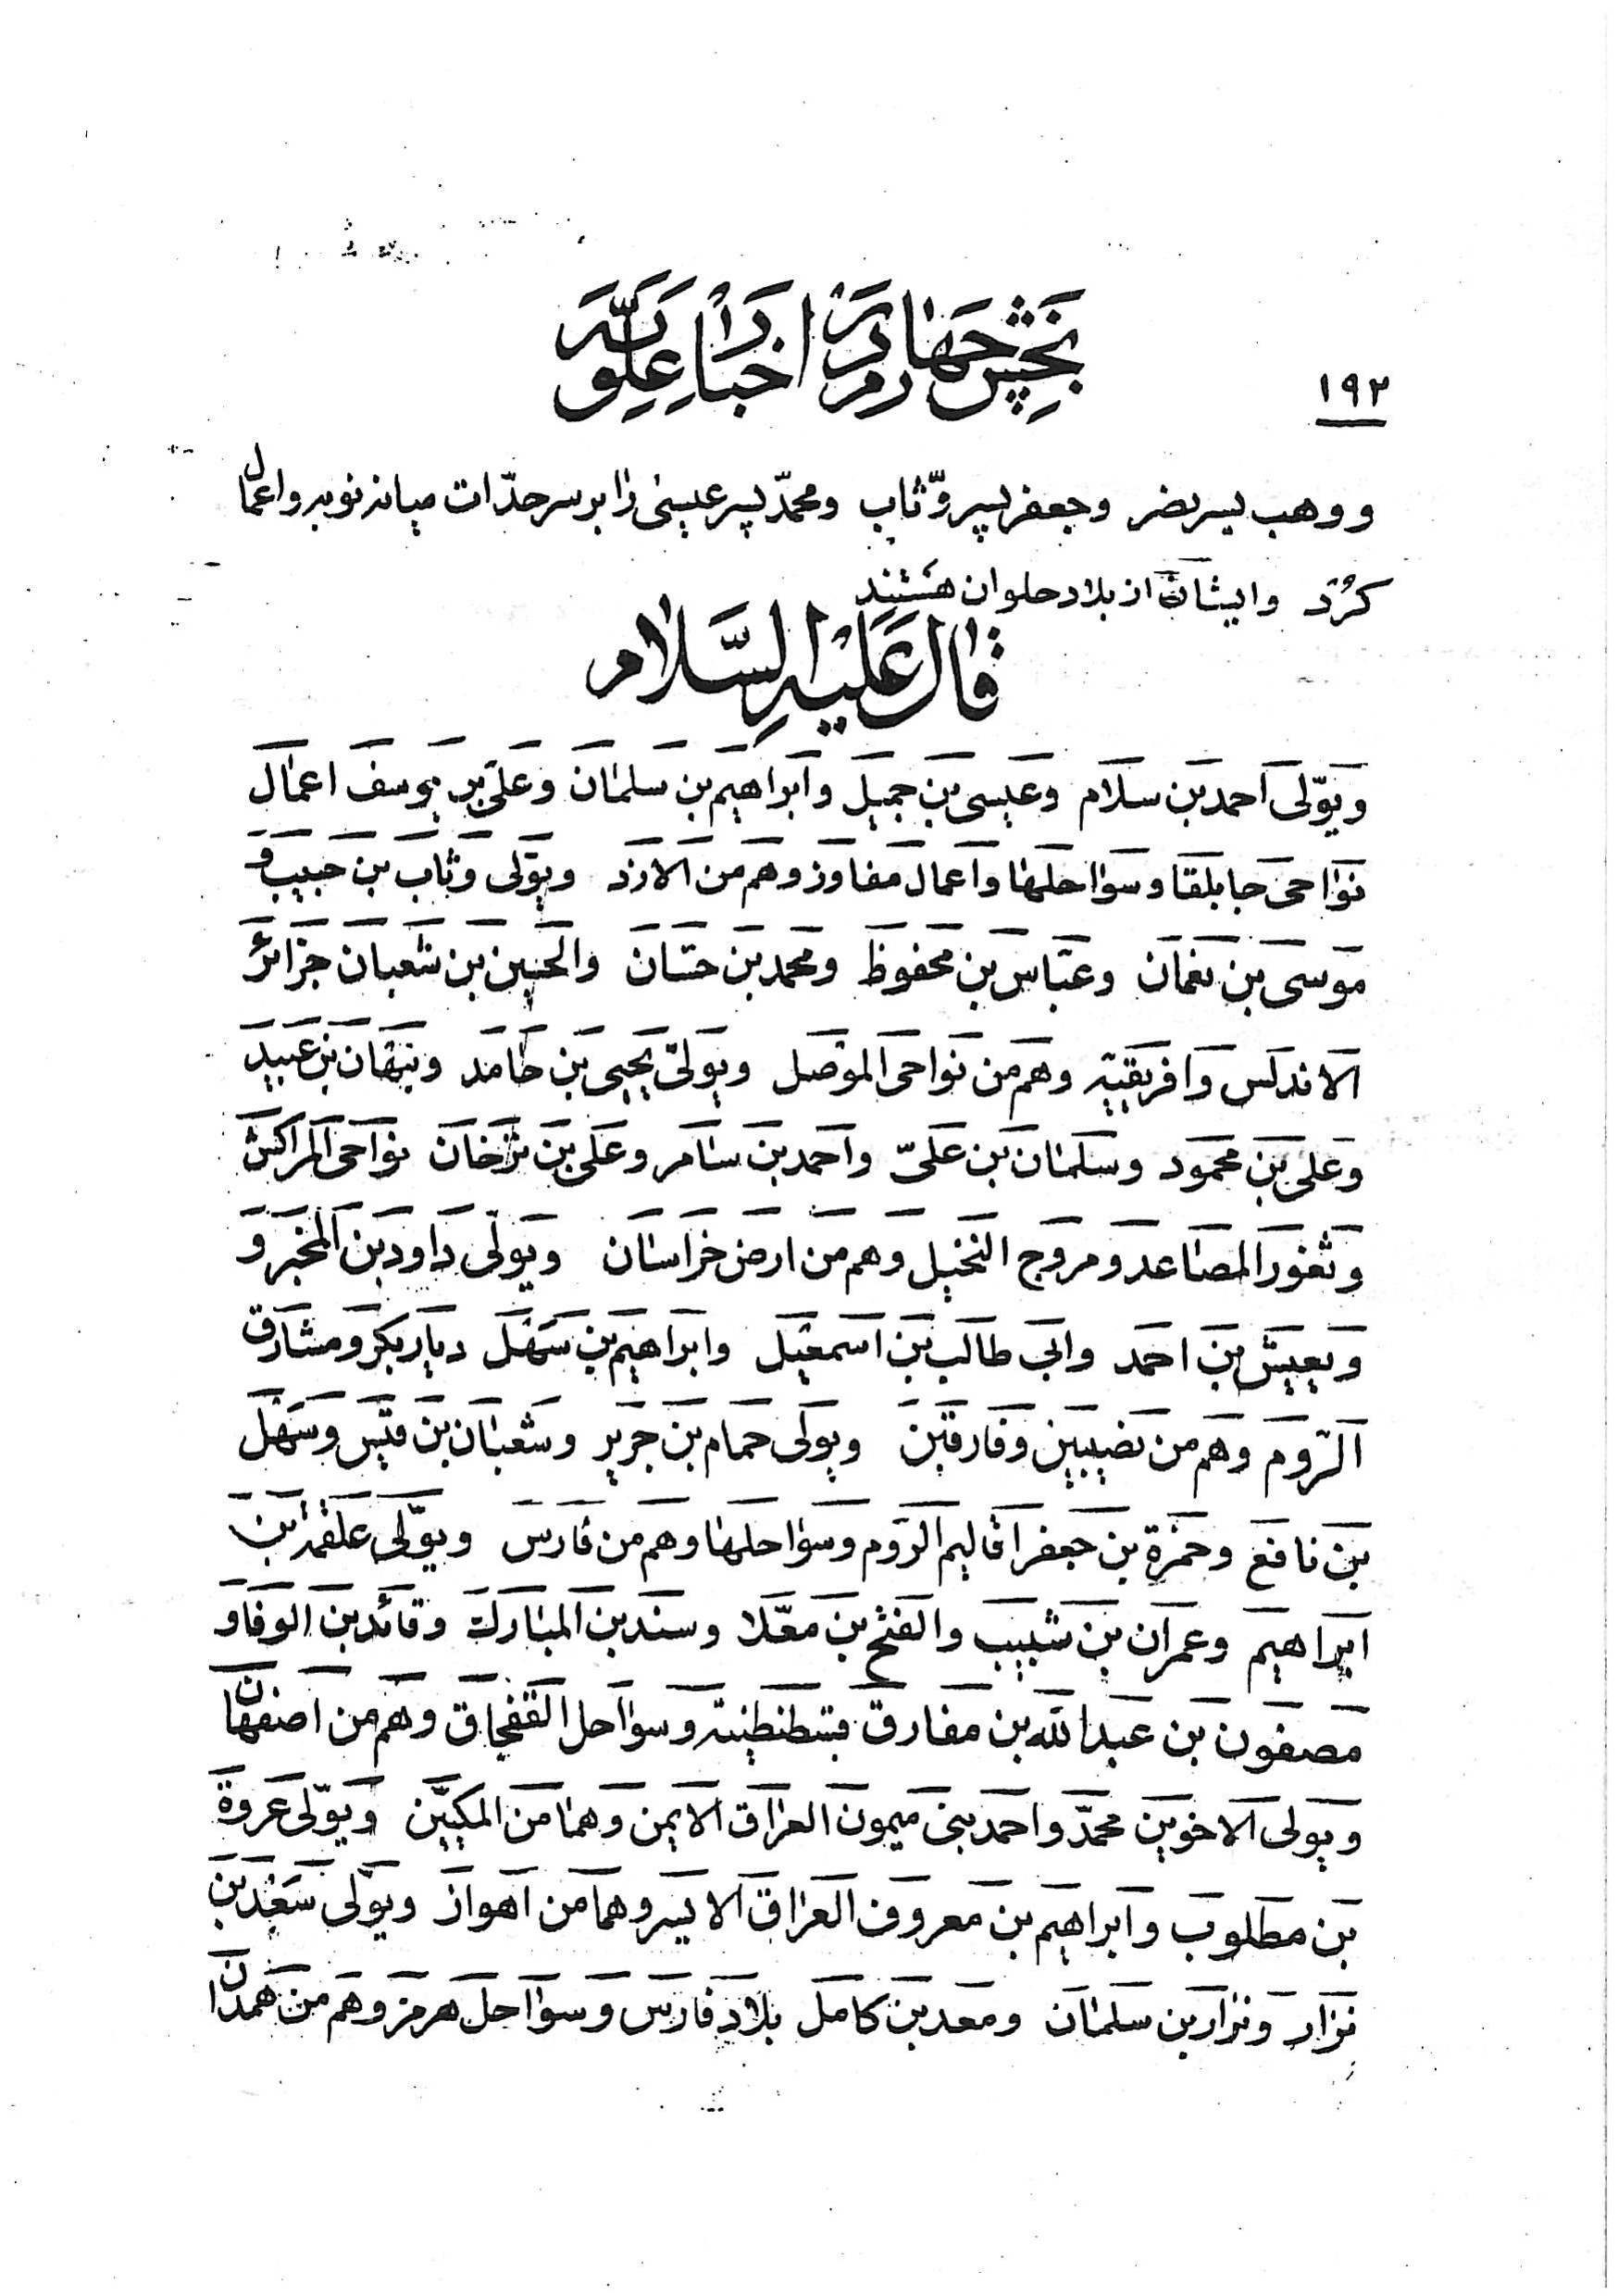 بخش چهارم در اخبار علویّه
۱۹۲
و وهب پسر نصر و جعفر پسر وثّاب و محمّد پسر عیسی را بر سرحدّات میانه نوبه و اعمال
کُرد و ایشان از بلاد حلوان هستند
قال علیه السلام
ویولّی احمد بن سلام وعیسی بن جمیل وابراهیم بن سلمان وعلی بن یوسف اعمال
نواحی جابلقا وسواحلها واعمال مفاوز وهم من الازد ویولی وثاب بن حبیب و
موسی بن نعمان وعبّاس بن محفوظ ومحمد بن حسّان والحسین بن شعبان جزائر
الاندلس وافریقیه وهم من نواحی الموصل ویولّی یحیی بن حامد ونبهان بن عبید
وعلی بن محمود وسلمان بن علیّ واحمد بن سامر وعلی بن ترخان نواحی المراکش
وثغور المصاعد ومروج النخیل وهم من ارض خراسان ویولّی داود بن المخبر و
ویعیش بن احمد وابی طالب بن اسمعیل وابراهیم بن سهل دیار بکر ومشارق
الرّوم وهم من نصیبین وفارقین ویولی حمام بن جریر وشعبان بن قیس وسهل
بن نافع وحمزة بن جعفر اقالیم الروم وسواحلها وهم من فارس ویولّی علقمه بن
ابراهیم وعمران بن شبیب والفتح بن معّلا وسند بن المبارک وقائد بن الوفا و
مصفون بن عبدالله بن مفارق قسطنطینیه وسواحل القفجاق وهم من اصفهان
ویولی الاخوین محمّد واحمد بنی میمون العراق الایمن وهما من المکیّین ویولّی عروة
بن مطلوب وابراهیم بن معروف العراق الایسر وهما من اهواز ویولّی سعد بن
نزار ونزار بن سلمان ومعد بن کامل بلاد فارس وسواحل هرمز وهم من همدان